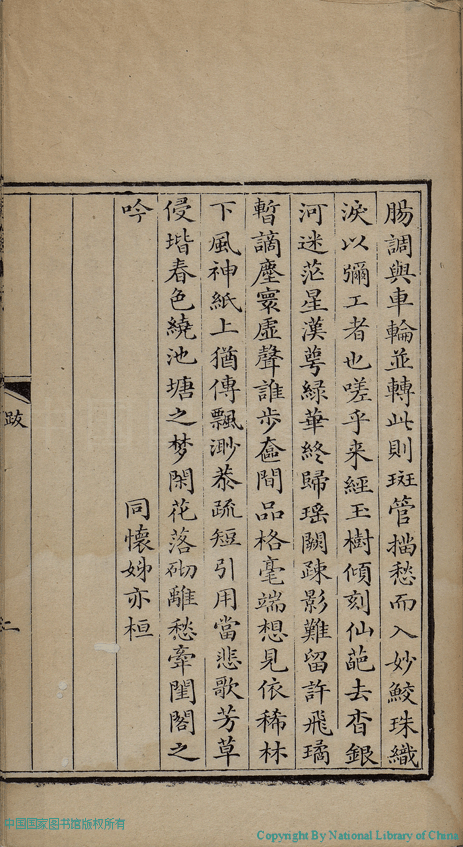 腸調與車輪並轉此則斑管描愁而入妙鮫珠織
淚以彌工者也嗟乎來經玉樹傾刻仙葩去杳銀
河迷茫星漢萼綠華終歸瑶闕疎影難留許飛瓊
暫謫塵寰虛聲誰步奩閒品格毫端想見依稀林
下風神紙上猶傳飄渺恭疏短引用當悲歌芳草
侵堦春色繞池塘之梦閑花落砌離愁牽閨閣之
吟
同懷姊亦桓
跋
二
中国国家图书馆版权所有
Copyright By National Library of China